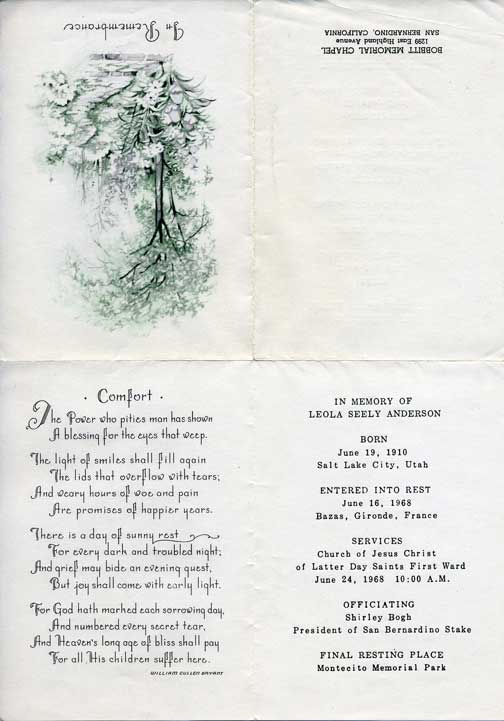 In Remembrance
BOBBITT MEMORIAL CHAPEL
1299 East Highland Avenue
SAN BERNARDINO, CALIFORNIA
· Comfort ·
The Power who pities man has shown
A blessing for the eyes that weep.
The light of smiles shall fill again
The lids that overflow with tears;
And weary hours of woe and pain
Are promises of happier years.
There is a day of sunny rest
For every dark and troubled night;
And grief may bide an evening guest,
But joy shall come with early light.
For God hath marked each sorrowing day,
And numbered every secret tear,
And Heaven's long age of bliss shall pay
For all His children suffer here.
WILLIAM CULLEN BRYANT
IN MEMORY OF
LEOLA SEELY ANDERSON
BORN
June 19, 1910
Salt Lake City, Utah
ENTERED INTO REST
June 16, 1968
Bazas, Gironde, France
SERVICES
Church of Jesus Christ
of Latter Day Saints First Ward
June 24, 1968 10:00 A.M.
OFFICIATING
Shirley Bogh
President of San Bernardino Stake
FINAL RESTING PLACE
Montecito Memorial Park